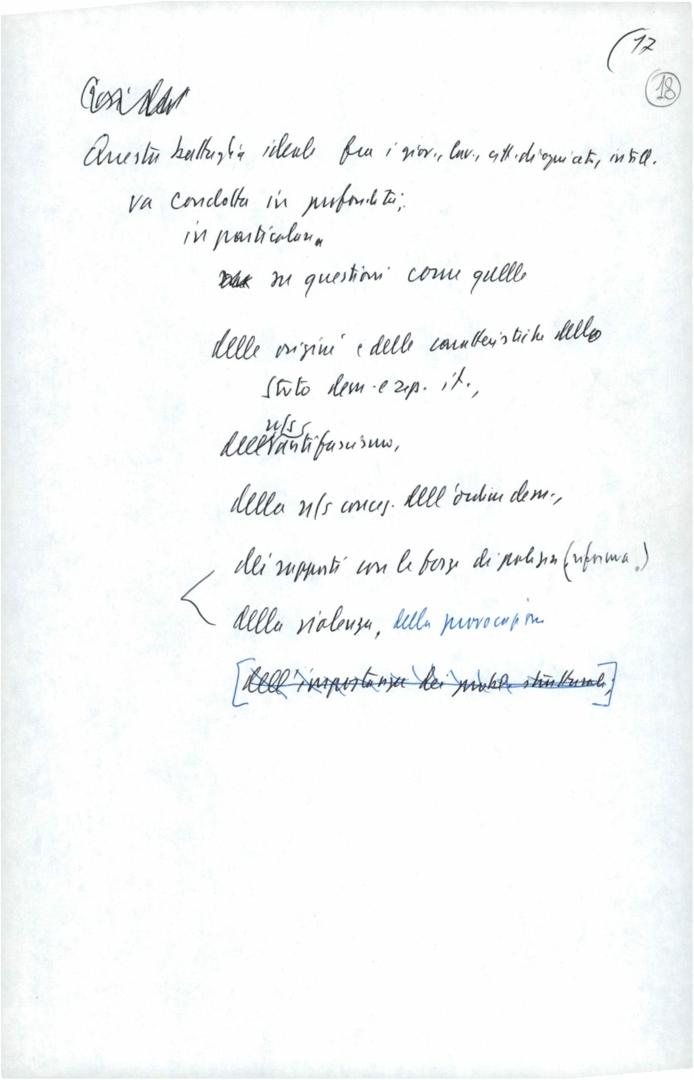 (17
18
Questa battaglia ideale fra i giov., lav., citt. di ogni età, intell.
va condotta in profondità;
in particolare
su questioni come quelle
delle origini e delle caratteristiche dello
Stato dem. e rep. it.,
n/s
dell'antifascismo,
della n/s concez. dell'ordine dem.,
dei rapporti con le forze di polizia (riforma.)
della violenza, della provocazione
[dell'importanza dei probl. strutturali;]